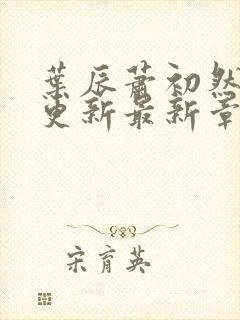 葉辰蕭初然
更新最新章
宋育英